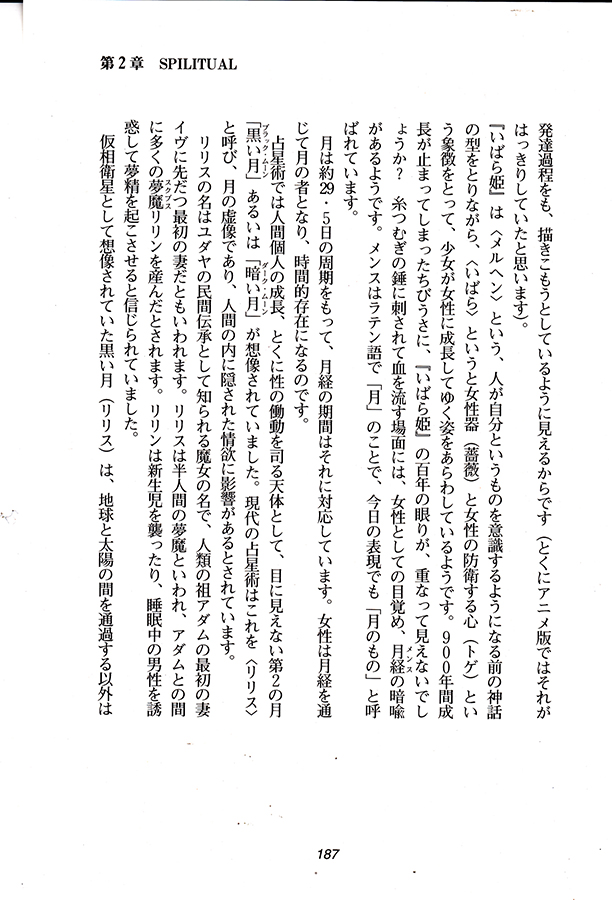 第2章　SPILITUAL
発達過程をも、描きこもうとしているように見えるからです（とくにアニメ版ではそれが
はっきりしていたと思います）。
『いばら姫』は〈メルヘン〉という、人が自分というものを意識するようになる前の神話
の型をとりながら、〈いばら〉というと女性器（薔薇）と女性の防衛する心（トゲ）とい
う象徴をとって、少女が女性に成長してゆく姿をあらわしているようです。900年間成
長が止まってしまったちびうさに、『いばら姫』の百年の眠りが、重なって見えないでし
ょうか？　糸つむぎの錘に刺されて血を流す場面には、女性としての目覚め、月経の暗喩
があるようです。メンスはラテン語で「月」のことで、今日の表現でも「月のもの」と呼
ばれています。
　月は約29・5日の周期をもって、月経の期間はそれに対応しています。女性は月経を通
じて月の者となり、時間的存在になるのです。
　占星術では人間個人の成長、とくに性の働動を司る天体として、目に見えない第2の月
「黒い月」あるいは「暗い月」が想像されていました。現代の占星術はこれを〈リリス〉
と呼び、月の虚像であり、人間の内に隠された情欲に影響があるとされています。
　リリスの名はユダヤの民間伝承として知られる魔女の名で、人類の祖アダムの最初の妻
イヴに先だつ最初の妻だともいわれます。リリスは半人間の夢魔といわれ、アダムとの間
に多くの夢魔リリンを産んだとされます。リリンは新生児を襲ったり、睡眠中の男性を誘
惑して夢精を起こさせると信じられていました。
　仮相衛星として想像されていた黒い月（リリス）は、地球と太陽の間を通過する以外は
187